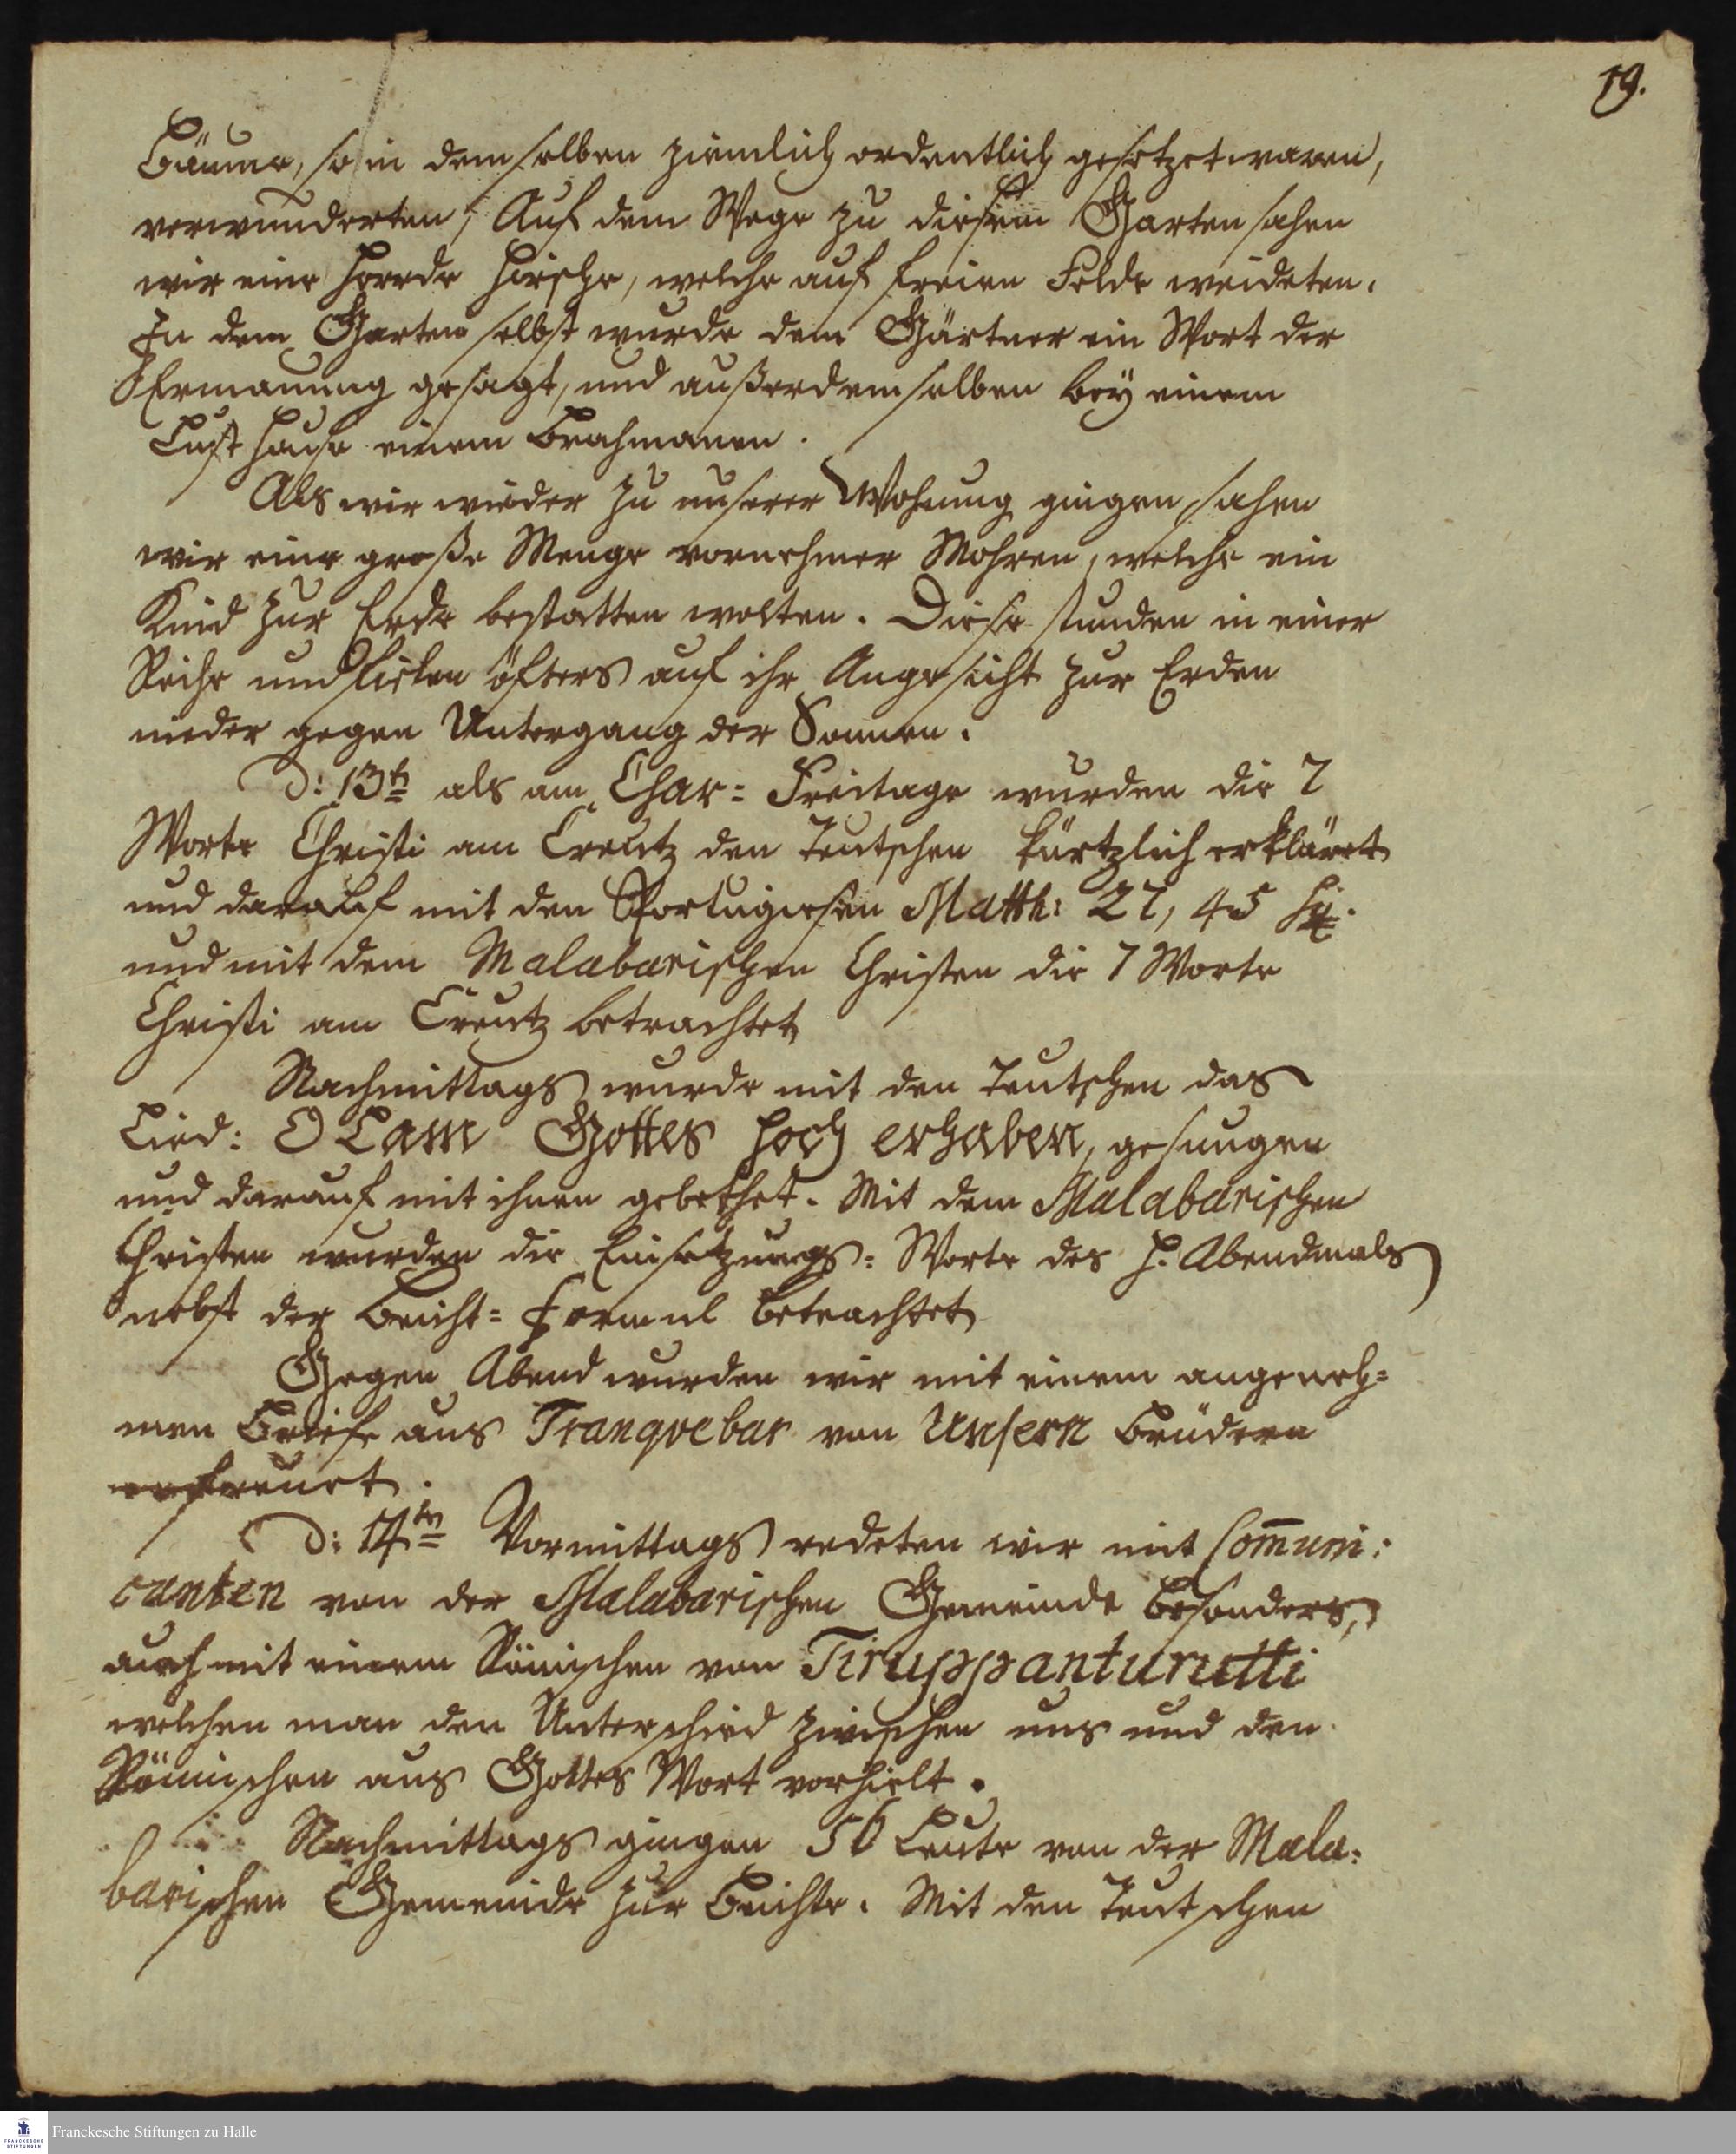 19.
Bäume, so in demselben ziemlich ordentlich gesetzet waren,
verwunderten, Auf dem Wege zu diesem Garten sahen
wir eine Heerde Hirsche, welche auf freien Felde weideten.
In dem Garten selbst wurde dem Gärtner ein Wort der
Ermanung gesagt, und außer demselben bey einem
Lust Hause einem Brahmanen.
Als wir wieder zu unserer Wohnung gingen, sahen
wir eine große Menge vornehmer Mohren, welche ein
Kind zur Erde bestatten wolten. Diese stunden in einer
Reihe und fielen öfters auf ihr Angesicht zur Erden
nieder gegen Untergang der Sonnen.
d: 13tn als am Char= Freitage wurden die 7
Worte Christi am Creutz den Teutschen kürtzlich erkläret
und darauf mit den Portugiesen Matth: 27, 45 sq.
und mit dem Malabarischen Christen die 7 Worte
Christi am Creutz betrachtet
Nachmittags wurde mit den Teutschen das
Lied: O Lam Gottes hoch erhaben, gesungen
und darauf mit ihnen gebethet. Mit dem Malabarischen
Christen wurden die Einsetzungs= Worte des H. Abendmals
nebst der Beicht= Formul betrachtet
Gegen Abend wurden wir mit einem angeneh=
men Briefe aus Tranqvebar von Unsern Brüdern
erfreuet.
d: 14tn Vormittags redeten wir mit Com̅uni=
canten von der Malabarischen Gemeinde besonders,
auch mit einem Römischen von Tiruppanturutti
welchen man den Unterschied zwischen uns und den
Römischen aus Gottes Wort vorhielt.
Nachmittags gingen 56 Leute von der Mala=
barischen Gemeinde zur Beichte. Mit den Teutschen
Franckesche Stiftungen zu Halle